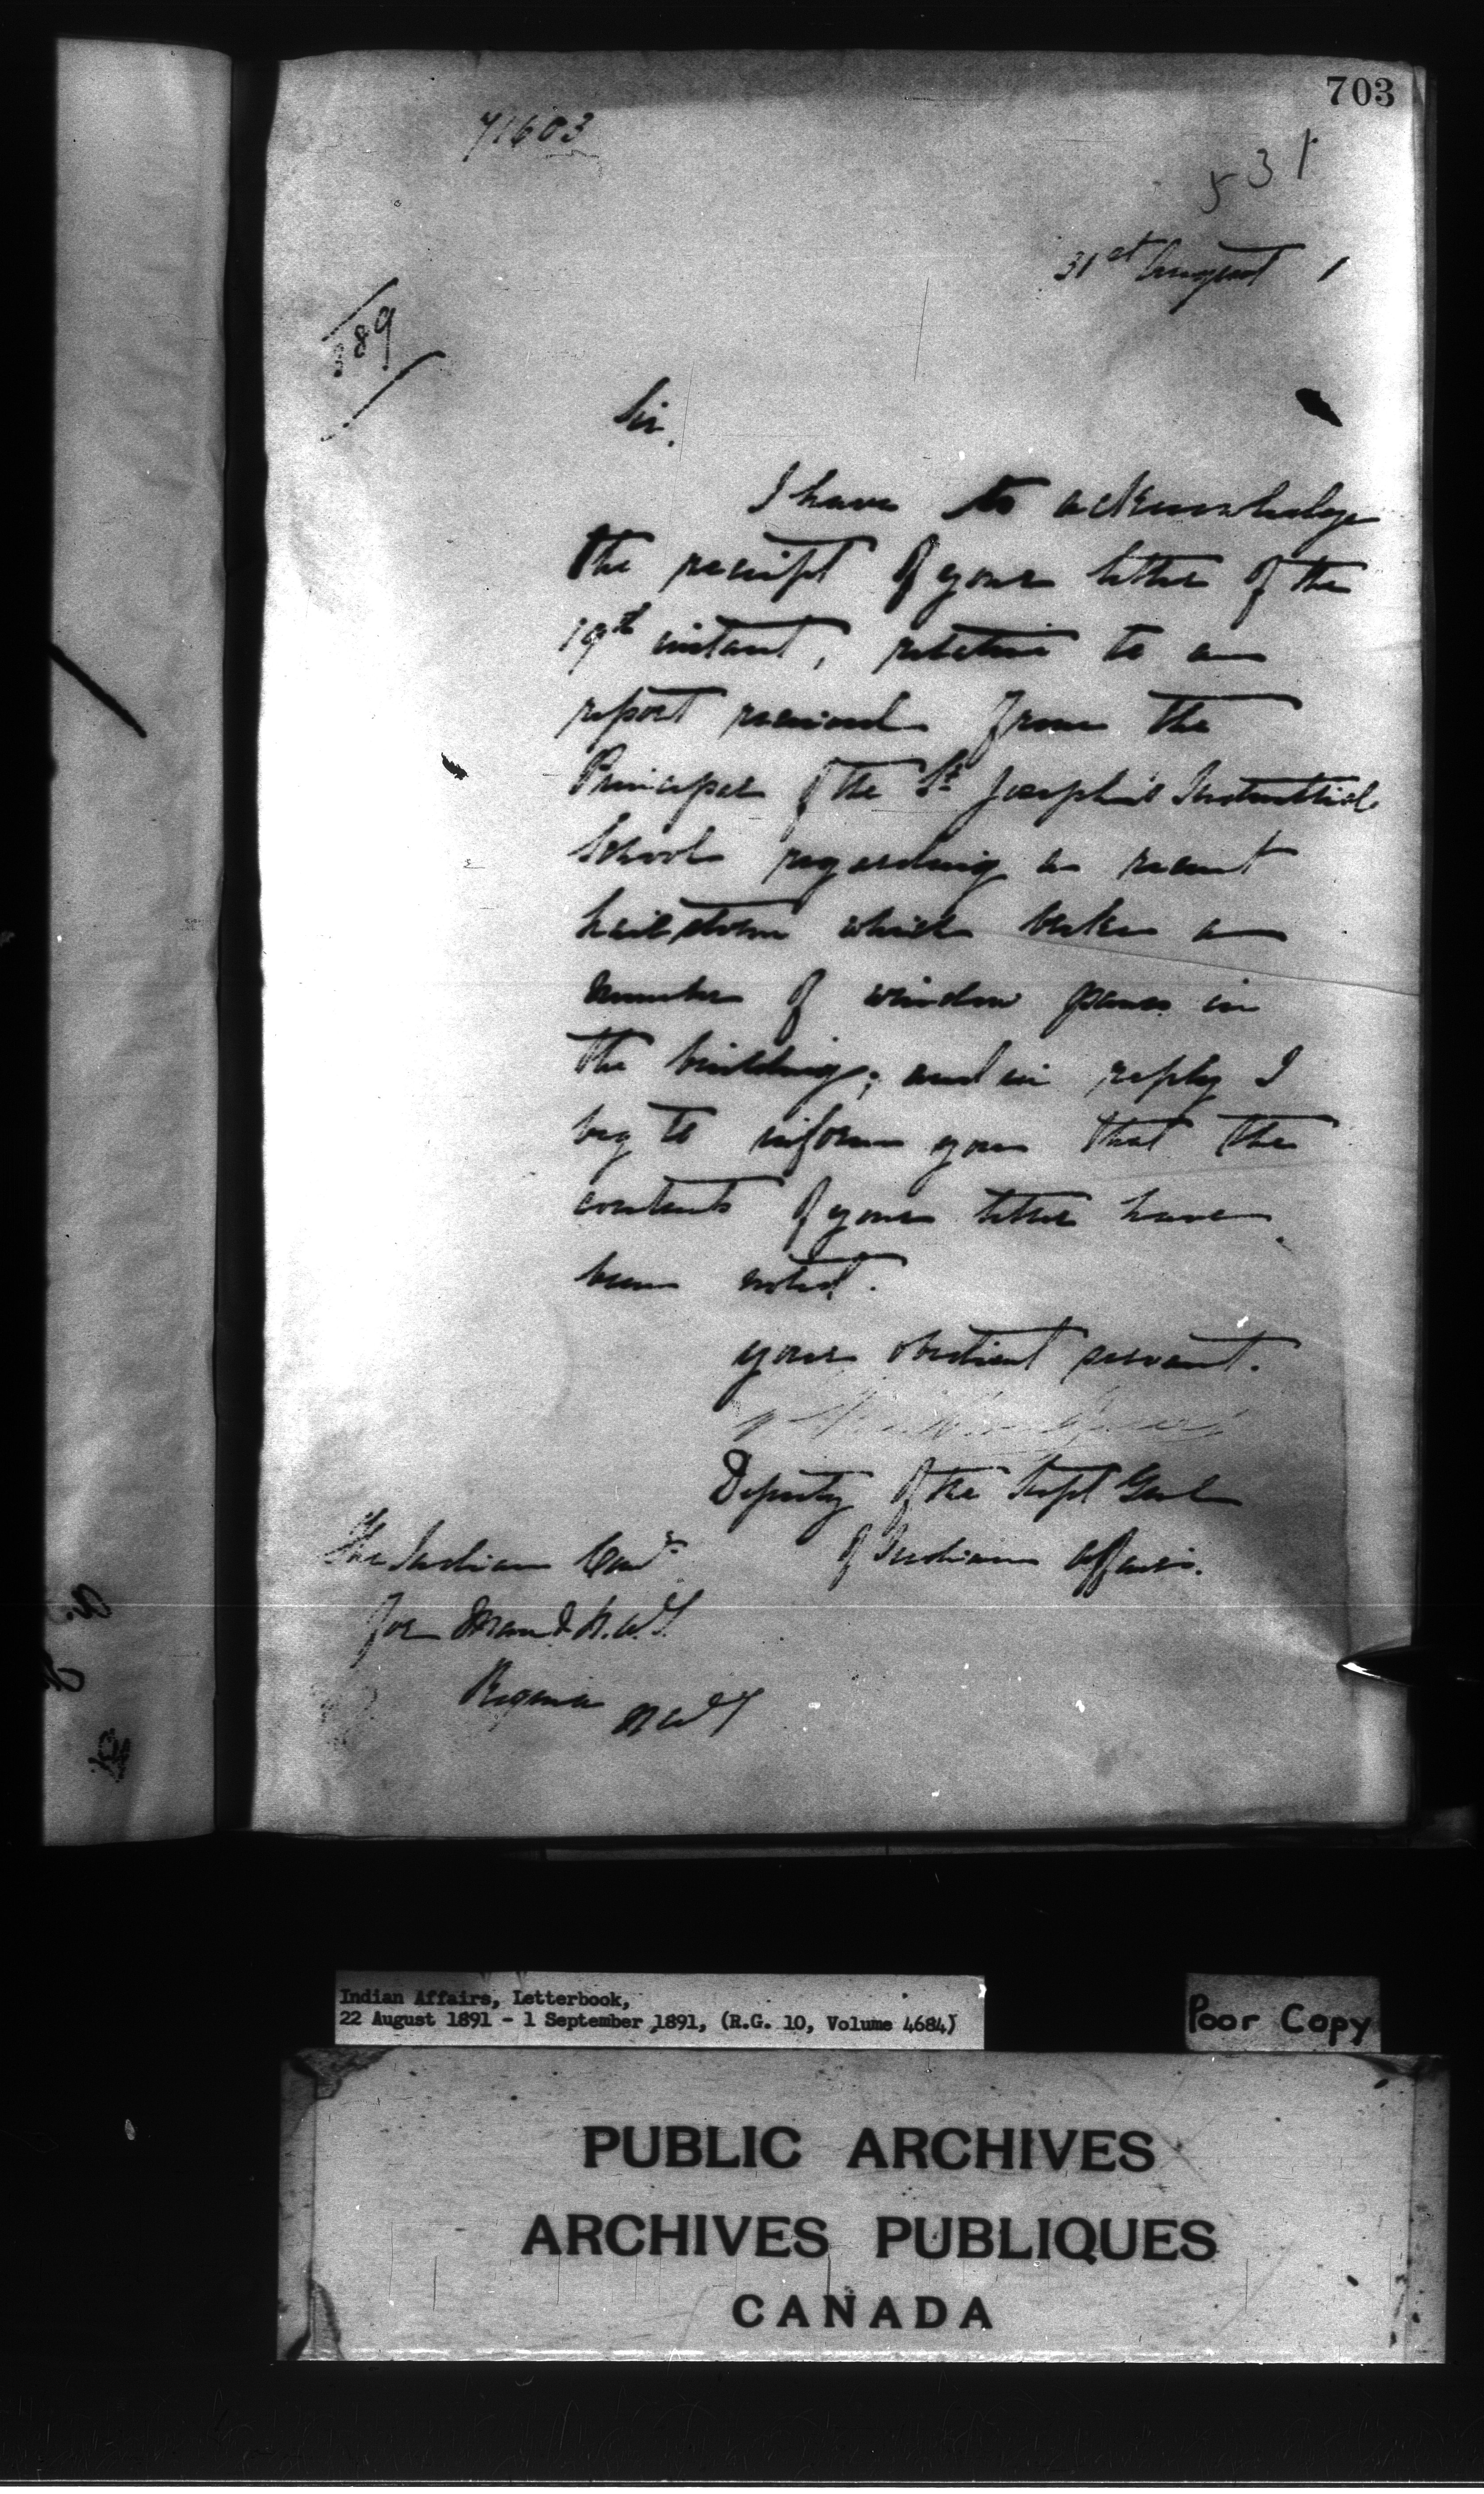 703
71603
531
31st August 1
389
Sir,
I have to acknowledge
the receipt of your letter of the
19th instant, relative to a
report received from the
Principal of the St Joseph's Industrial
School regarding a recent
hailstorm which broke a
number of window panes in
the building; and in reply I
beg to inform you that the
contents of your letter have
been noted.
your obedient servant.
Deputy of the Supt Genl
of Indian Affairs.
The Indian Comr
for Man. & N.W.T.
Regina
NWT
Indian Affairs, Letterbook,
22 August 1891 - 1 September 1891, (R.G. 10, Volume 4684)
Poor Copy
PUBLIC ARCHIVES
ARCHIVES PUBLIQUES
CANADA